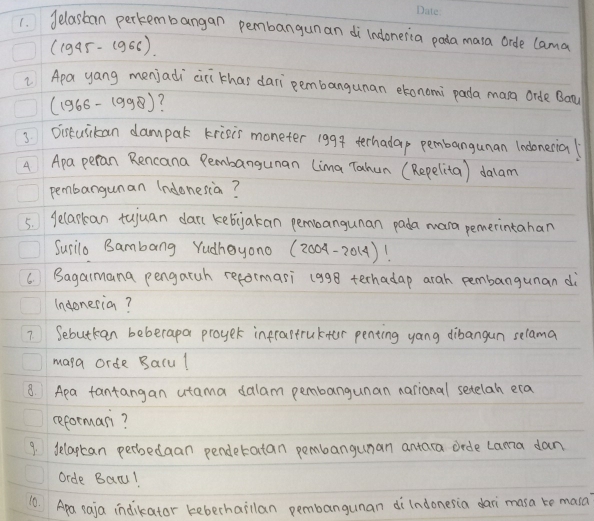 Date
1. Jelaskan perkembangan pembangunan di Indonesia pada masa Orde Lama
(1945 - 1966).
2. Apa yang menjadi ciri khas dari pembangunan ekonomi pada masa Orde Baru
(1966 - 1998)?
3. Diskusikan dampak krisis moneter 1997 terhadap pembangunan Indonesia!
4. Apa peran Rencana Pembangunan Lima Tahun (Repelita) dalam
pembangunan Indonesia?
5. Jelaskan tujuan dari kebijakan pembangunan pada masa pemerintahan
Susilo Bambang Yudhoyono (2004 - 2014)!
6. Bagaimana pengaruh reformasi 1998 terhadap arah pembangunan di
Indonesia?
7. Sebutkan beberapa proyek infrastruktur penting yang dibangun selama
masa Orde Baru!
8. Apa tantangan utama dalam pembangunan nasional setelah era
reformasi?
9. Jelaskan perbedaan pendekatan pembangunan antara Orde Lama dan
Orde Baru!
10. Apa saja indikator keberhasilan pembangunan di Indonesia dari masa ke masa